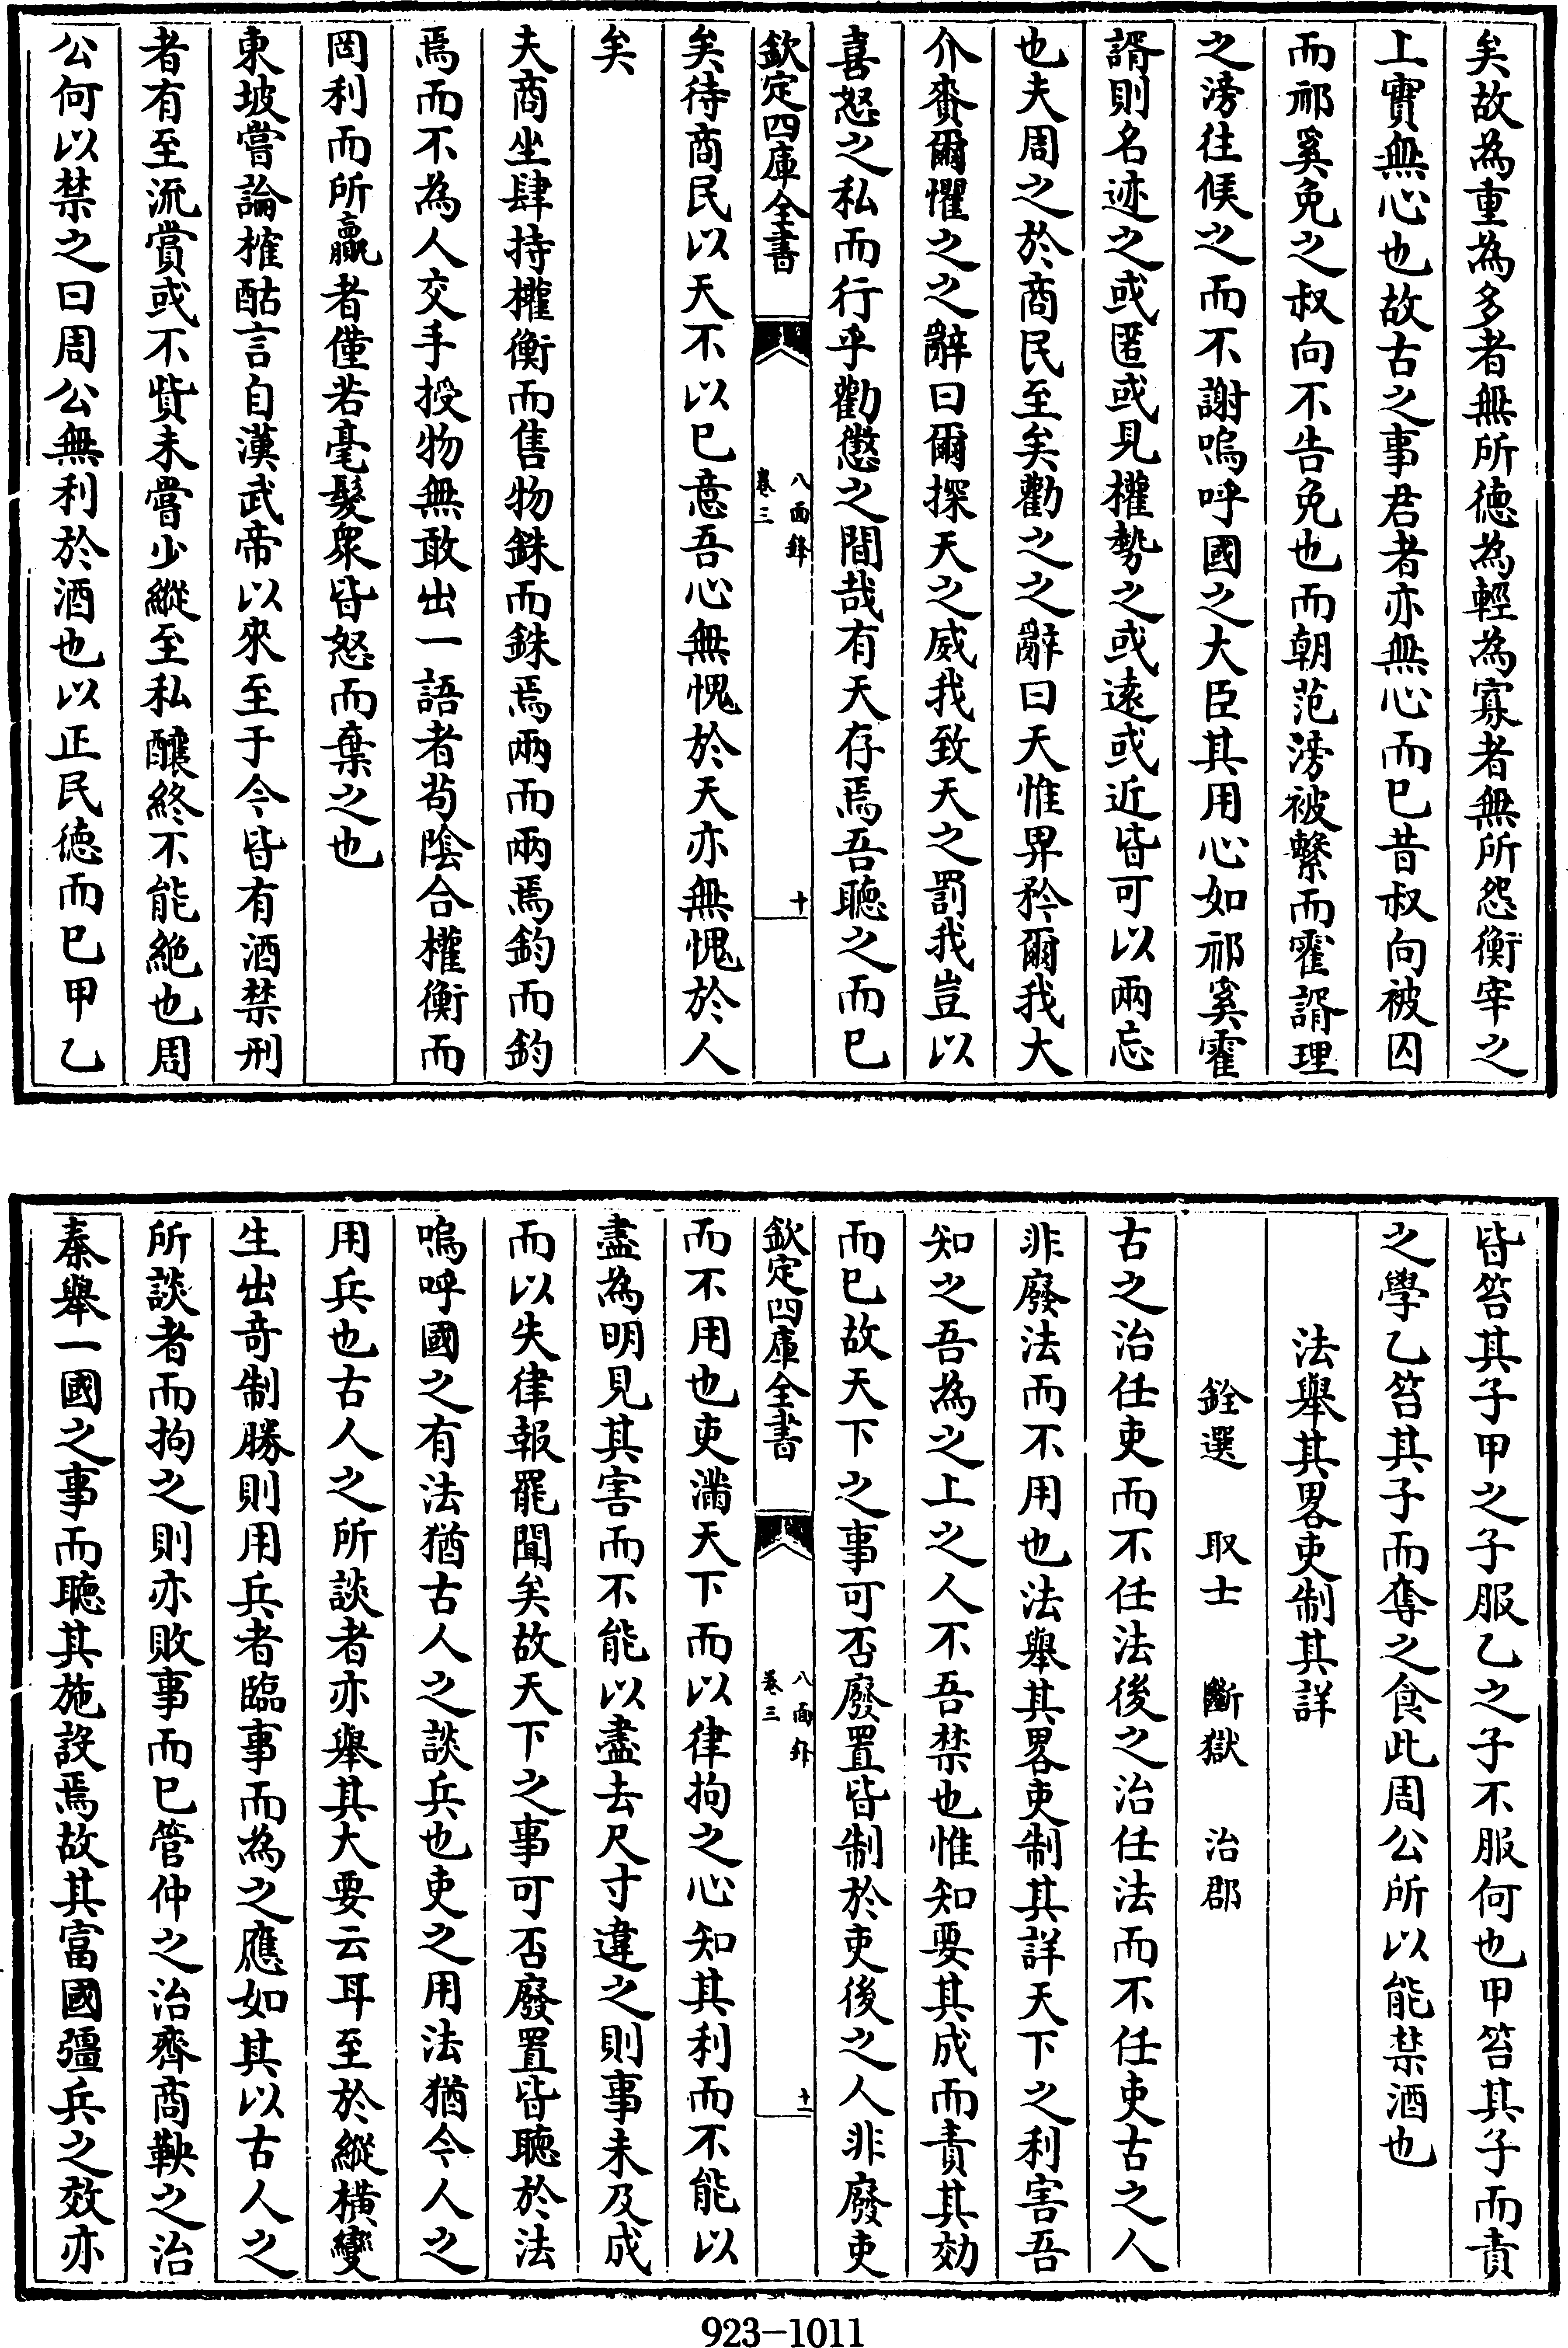 矣故為重為多者無所德為輕為寡者無所怨衡宰之
上實無心也故古之事君者亦無心而已昔叔向被囚
而祁奚免之叔向不告免也而朝范滂被繫而霍諝理
之滂往候之而不謝嗚呼國之大臣其用心如祁奚霍
諝則名迹之或匿或見權勢之或遠或近皆可以兩忘
也夫周之於商民至矣勸之之辭曰天惟畀矜爾我大
介賚爾懼之之辭曰爾探天之威我致天之罰我豈以
喜怒之私而行乎勸懲之間哉有天存焉吾聽之而已
欽定四庫全書
八面鋒
卷三
十
矣待商民以天不以己意吾心無愧於天亦無愧於人
矣
夫商坐肆持權衡而售物銖而銖焉兩而兩焉鈞而鈞
焉而不為人交手授物無敢出一語者茍陰合權衡而
罔利而所贏者僅若毫髮眾皆怒而棄之也
東坡嘗論榷酤言自漢武帝以來至于今皆有酒禁刑
者有至流賞或不貲未嘗少縱至私釀終不能絶也周
公何以禁之曰周公無利於酒也以正民德而已甲乙
皆笞其子甲之子服乙之子不服何也甲笞其子而責
之學乙笞其子而奪之食此周公所以能禁酒也
法舉其畧吏制其詳
銓選 取士 斷獄 治郡
古之治任吏而不任法後之治任法而不任吏古之人
非廢法而不用也法舉其畧吏制其詳天下之利害吾
知之吾為之上之人不吾禁也惟知要其成而責其効
而已故天下之事可否廢置皆制於吏後之人非廢吏
欽定四庫全書
八面鋒
卷三
十一
而不用也吏滿天下而以律拘之心知其利而不能以
盡為明見其害而不能以盡去尺寸違之則事未及成
而以失律報罷聞矣故天下之事可否廢置皆聽於法
嗚呼國之有法猶古人之談兵也吏之用法猶今人之
用兵也古人之所談者亦舉其大要云耳至於縱橫變
生出奇制勝則用兵者臨事而為之應如其以古人之
所談者而拘之則亦敗事而已管仲之治齊商鞅之治
秦舉一國之事而聽其施設焉故其富國彊兵之效亦
923-1011